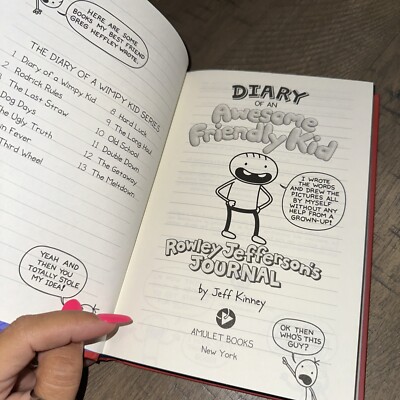 HERE ARE SOME
BOOKS MY BEST FRIEND
GREG HEFFLEY WROTE.
THE DIARY OF A WIMPY KID SERIES
1 Diary of a Wimpy Kid
2 Rodrick Rules
The Last Straw
Dog Days
The Ugly Truth
Fever
Third Wheel
8 Hard Luck
9 The Long Haul
10 Old School
11 Double Down
12 The Getaway
13 The Meltdown
YEAH AND
THEN YOU
TOTALLY STOLE
MY IDEA!
DIARY
OF AN
Awesome
Friendly Kid
I WROTE
THE WORDS
AND DREW THE
PICTURES ALL
BY MYSELF
WITHOUT ANY
HELP FROM A
GROWN-UP!
Rowley Jefferson's
JOURNAL
by Jeff Kinney
AMULET BOOKS
New York
OK THEN
WHO'S THIS
GUY?